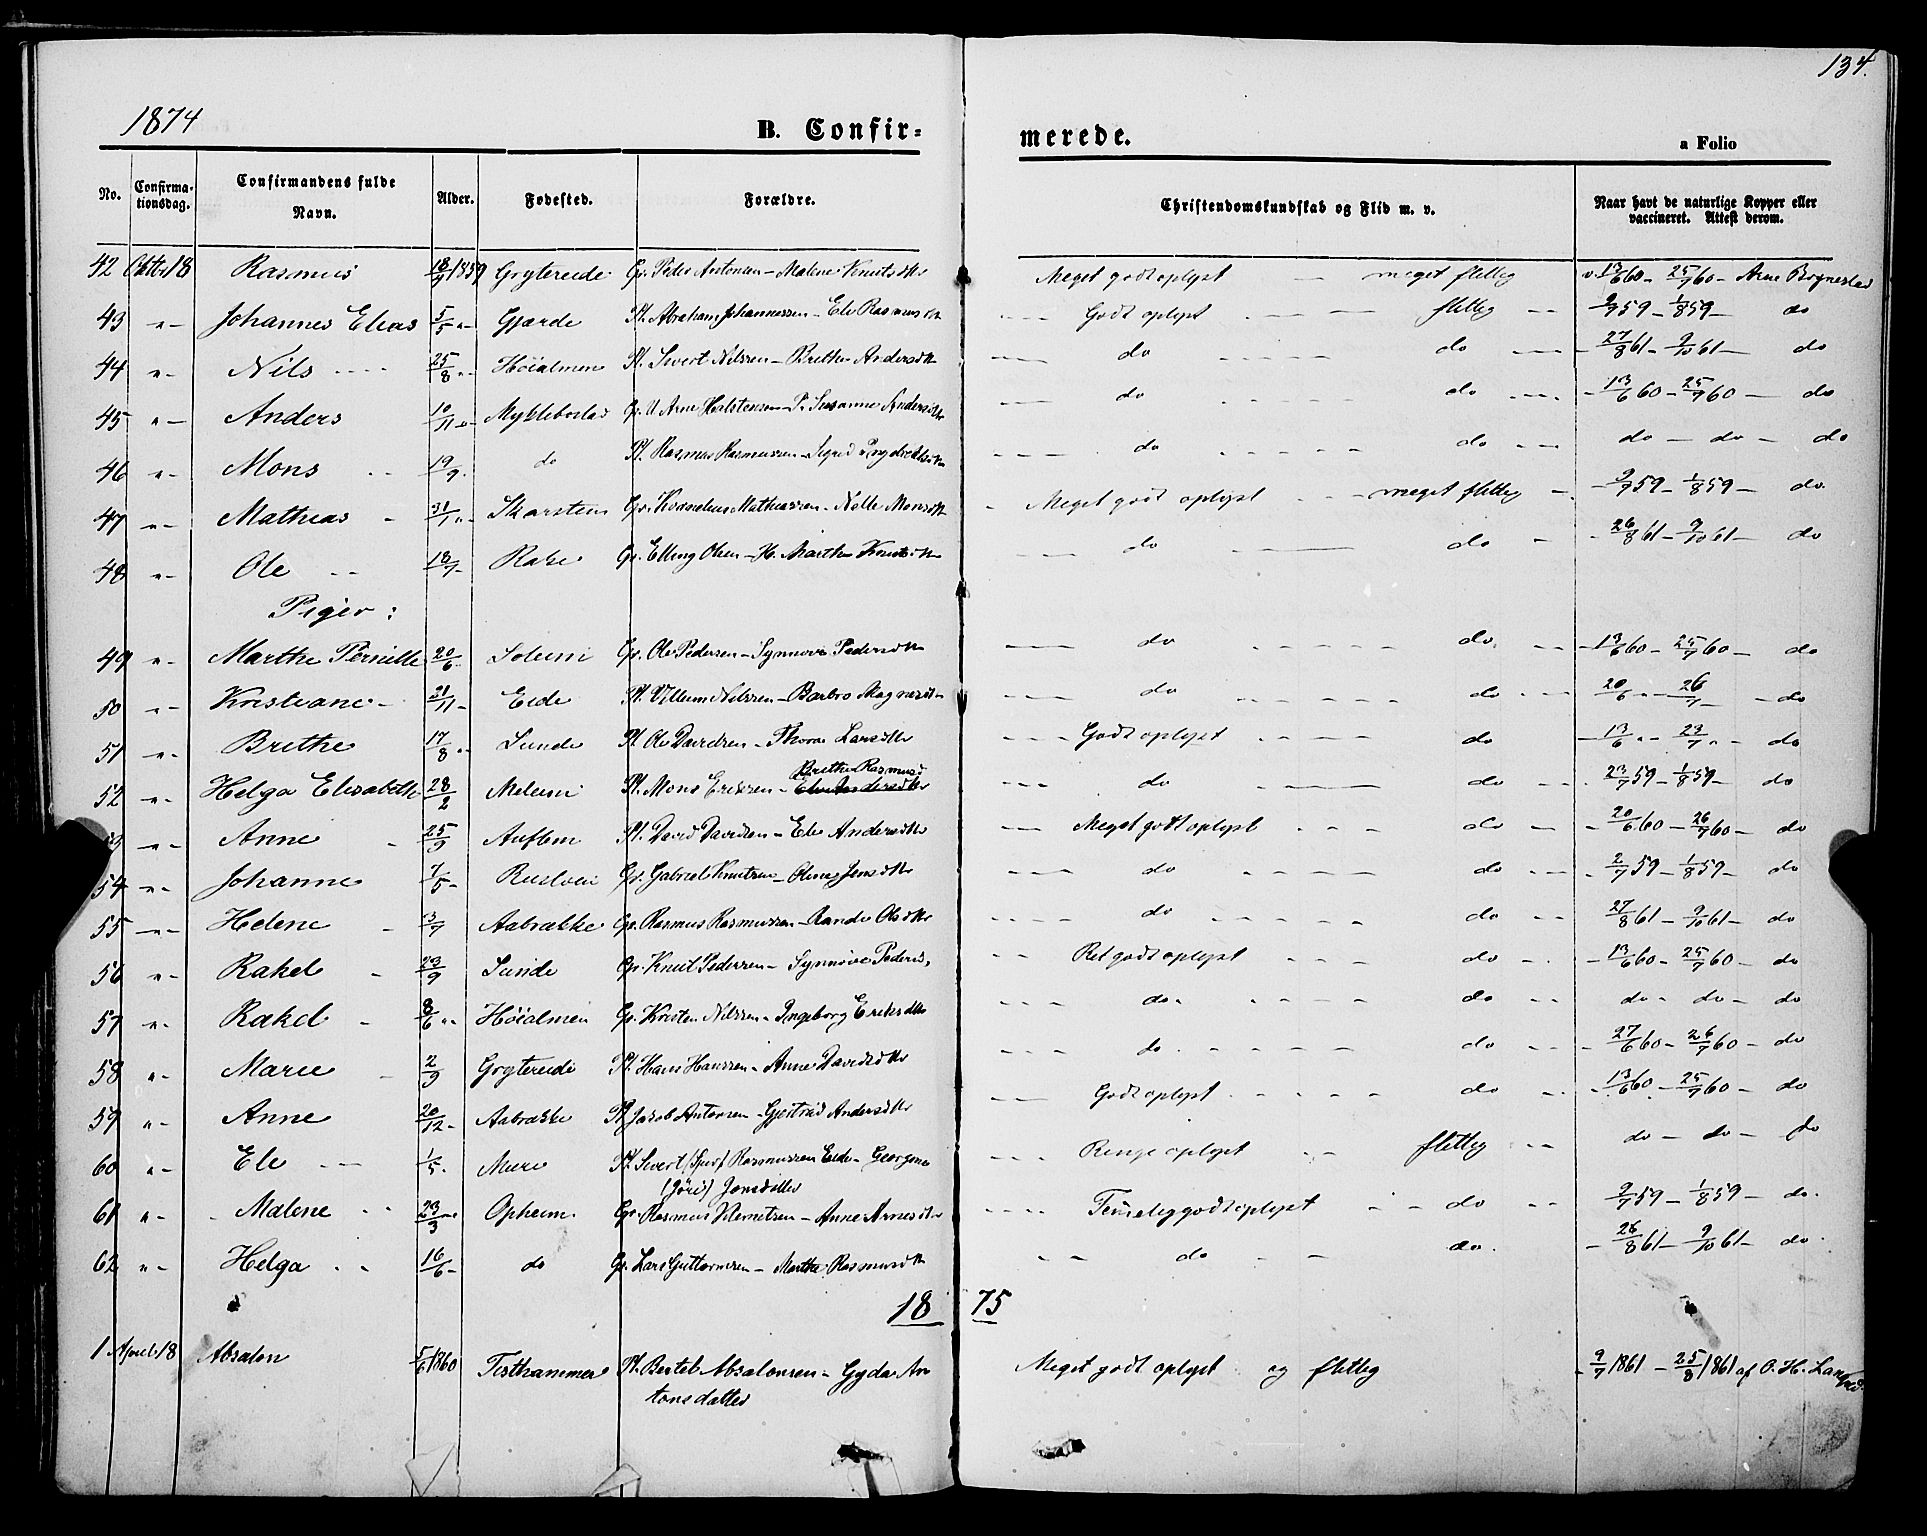 134.
1874
B. Confir=
merede.
a Folio
No. Confirma-tionsdag. Confirmandens fulde Navn. Alder. Fødested. Forældre. Christendomskundskab og Flid m. v. Naar havt de naturlige Kopper eller vaccineret. Attest derom.
42 Octbr 18 Rasmus 18/4 1859 Grytereide Gr. Peder Antonsen - Malene Knutsdtr Meget godt oplyst — meget flittig v. 13/6 60 - 25/7 60 - Arne Bognestad
43 "- Johannes Elias 5/5 "- Gjærde Pl. Abraham Johannessen - Eli Rasmusdtr Godt oplyst flittig 9/7 59 - 1/8 59 - do
44 "- Nils 25/8 "- Höialmen Pl. Sivert Nilssen - Brithe Andersdtr do do 27/8 61 - 9/10 61 - do
45 "- Anders 10/11 "- Myklebostad Gr. U. Arne Halstensen - P. Susanne Andersdtr do do 13/6 60 - 25/7 60 - do
46 "- Mons 19/9 do Pl. Rasmus Rasmussen - Sigrid Ingebrigtsdtr do do do - do - do
47 "- Mathias 31/1 "- Skarsten Gr. Kornelius Mathiassen - Nille Monsdtr Meget godt oplyst meget flittig 9/7 59 - 1/8 59 - do
48 "- Ole 18/7 Rake Gr. Elling Olsen - H. Marthe Knutsdtr do do 26/8 61 - 9/10 61 - do
Piger:
49 "- Marthe Pernille 20/6 Solemi Gr. Ole Pedersen - Synnøve Pedersdtr do do 13/6 60 - 25/7 60 - do
50 "- Kristiane 21/11 Eide Pl. Villum Nilssen - Barbro Magnesdtr do do 20/6 - 26/7 - do
51 "- Brithe 17/8 "- Sunde Pl. Ole Davidsen - Thora Larsdtr Godt oplyst do 13/6 "- 23/7 "- do
Brithe Rasmusd
52 "- Helga Elisabeth 28/2 Melemi Pl. Mons Erikssen - Eli Andersdtr do do 23/7 59 - 1/8 59 - do
53 "- Anne 25/9 Auflem Pl. David Davidsen - Eli Andersdtr Meget godt oplyst do 20/6 60 - 26/7 60 - do
54 "- Johanne 7/5 Rustöen Gr. Gabriel Knutsen - Oline Jensdtr do do 2/7 59 - 1/8 59 - do
55 "- Helene 3/7 Aabrække Gr. Rasmus Rasmussen - Rande Olsdtr do do 27/8 61 - 9/10 61 - do
56 "- Rakel 23/9 Sunde Gr. Knut Pedersen - Synnøve Peders. Ret godt oplyst do 13/6 60 - 25/7 60 - do
57 "- Rakel 8/6 "- Höialmen Gr. Kristen Nilssen - Ingeborg Eriksdtr do. do do - do - do
58 "- Marie 2/9 Grytereide Pl. Hans Hanssen - Anne Davidsdtr do. do 27/6 60 - 26/7 60 - do
59 "- Anne 20/12 Aabrække Pl. Jakob Antonsen - Gjertrud Andersdtr Godt oplyst do 13/6 60 - 25/7 60 - do
60 "- Eli 1/5 Muri Pl. Sivert (Sjur) Rasmussen Eide - Georgine (Jöri) Jonsdatter Ringe oplyst flittig do - do - do
61 "- Malene 23/3 Opheim Gr. Rasmus Klemetsen - Anne Arnesdtr Temeliggodt oplyst do 9/7 59 - 1/8 59 - do.
62 "- Helga 16/6 do Gr. Lars Guttormsen - Marthe Rasmusdtr do do. 26/8 61 - 9/10 61 - do.
1875
1 April 18 Absalon 5/6 1860 Tisthammer Pl. Bertel Absalonsen - Gyda Antonsdatter Meget godt oplyst og flittig 9/7 1861 - 25/8 1861 af O. H.